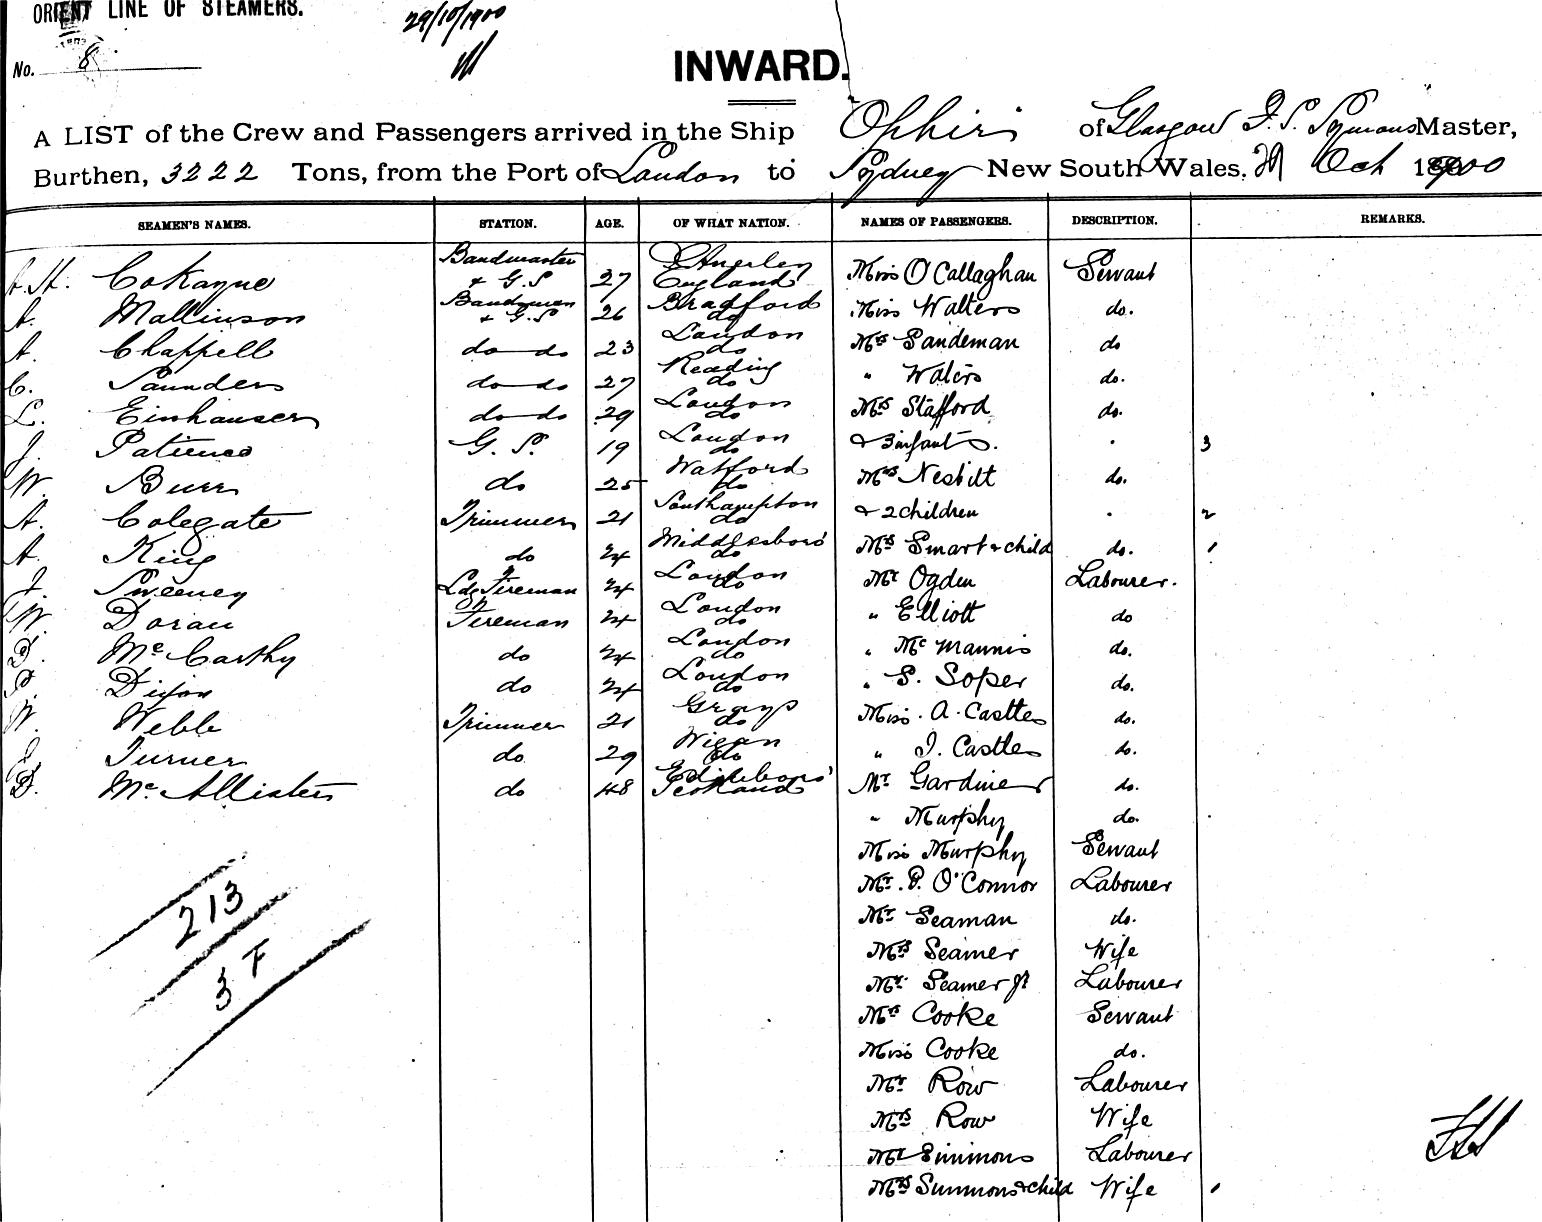 ORIENT LINE OF STEAMERS.
29/10/1900
No. 8
INWARD.
A LIST of the Crew and Passengers arrived in the Ship Ophir of Glasgow J. F. Symons Master,
Burthen, 3222 Tons, from the Port of London to Sydney New South Wales, 29 Oct 1900
SEAMEN'S NAMES. STATION. AGE. OF WHAT NATION. NAMES OF PASSENGERS. DESCRIPTION. REMARKS.
A.H. Cokayne Bandmaster & G.S 27 England Miss O'Callaghan Servant
A. Mallinson Bandsman & G.S 26 Bradford do Miss Walters do.
A. Chappell do do 23 London do Mrs Sandeman do
C. Saunders do do 27 Reading do " Waters do.
L. Einhauser do do 29 London do Mrs Stafford do.
J. Patience G. S. 19 London do & 3 infants. 3
W. Burr do 25 Watford do Mrs Nesbitt do.
A. Colegate Trimmer 21 Southampton do & 2 children 2
A. King do 24 Middlesboro' do Mrs Smart & child do. 1
J. Sweeney Ldg Fireman 24 London do Mr Ogden Labourer.
W. Doran Fireman 24 London do " Elliott do
D. McCarthy do 24 London do " McMannis do.
P. Dixon do 24 London do " S. Soper do.
W. Webb Trimmer 21 Grays do Miss. A. Castles do.
J Turner do 29 Wigan do " I. Castles do.
D. McAllister do 48 Edinboro' Scotland Mr Gardiner do.
" Murphy do.
Miss Murphy Servant
Mr. P. O'Connor Labourer
Mr Seaman do.
Mrs Seamer Wife
Mr Seamer Jr Labourer
Mrs Cooke Servant
Miss Cooke do.
Mr Row Labourer
Mrs Row Wife
Mr Simmons Labourer
Mrs Simmons & child Wife 1
213
3 F